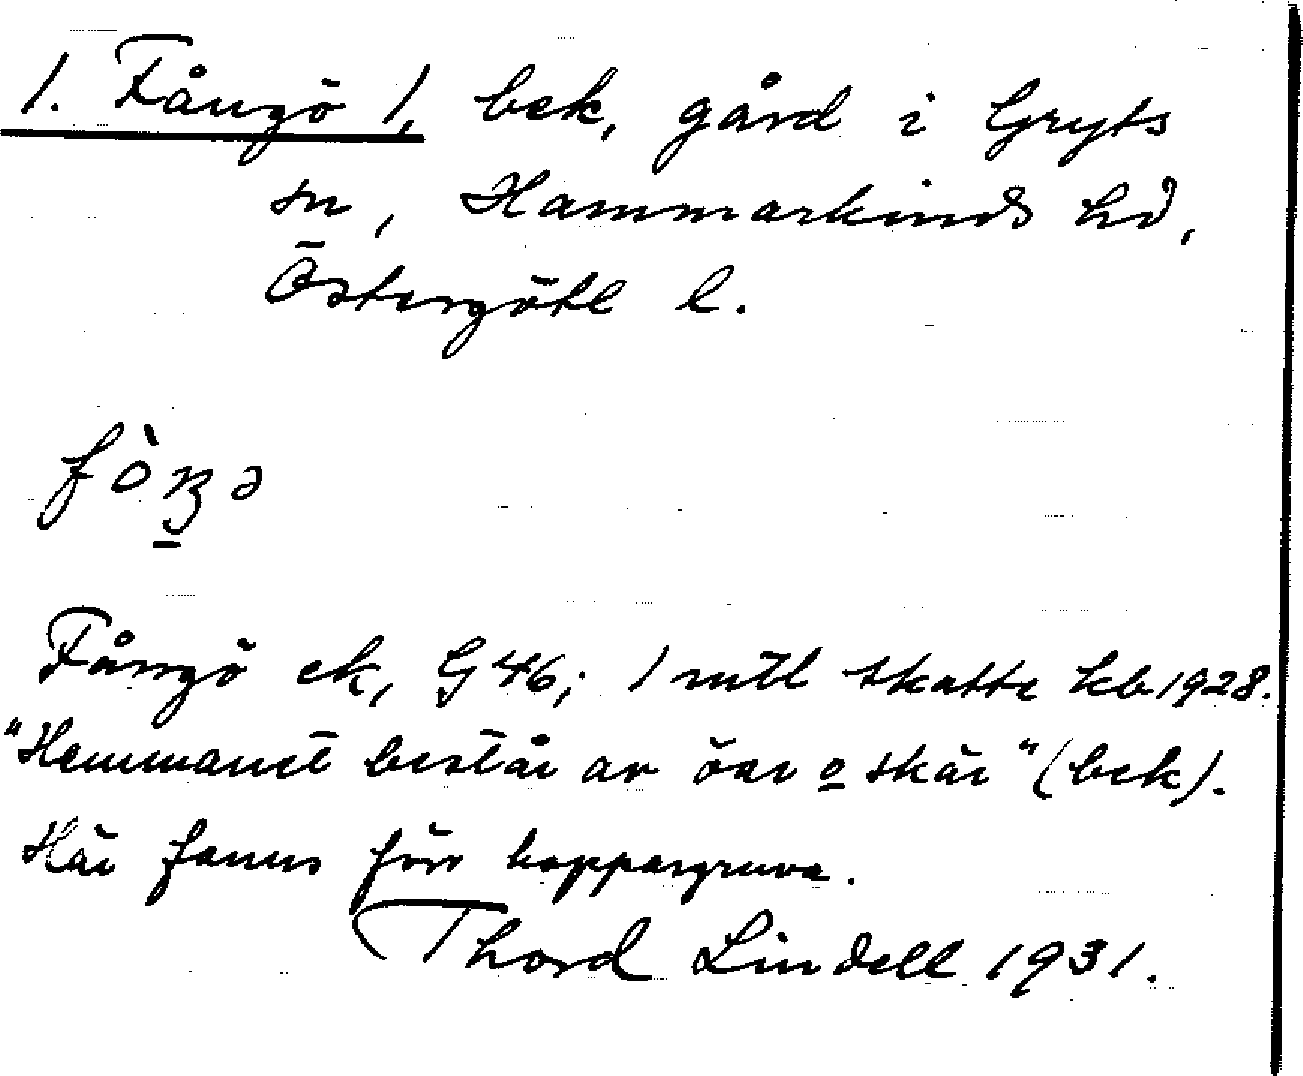 1. Fångö 1, bek, gård i Gryts
sn, Hammarkinds hd,
Östergötl l.
fòŋə
Fångö ek, G 46; 1 mtl skatte kb 1928.
"Hemmanet består av öar o skär" (bek).
Här fanns förr koppargruva.
Thord Lindell 1931.